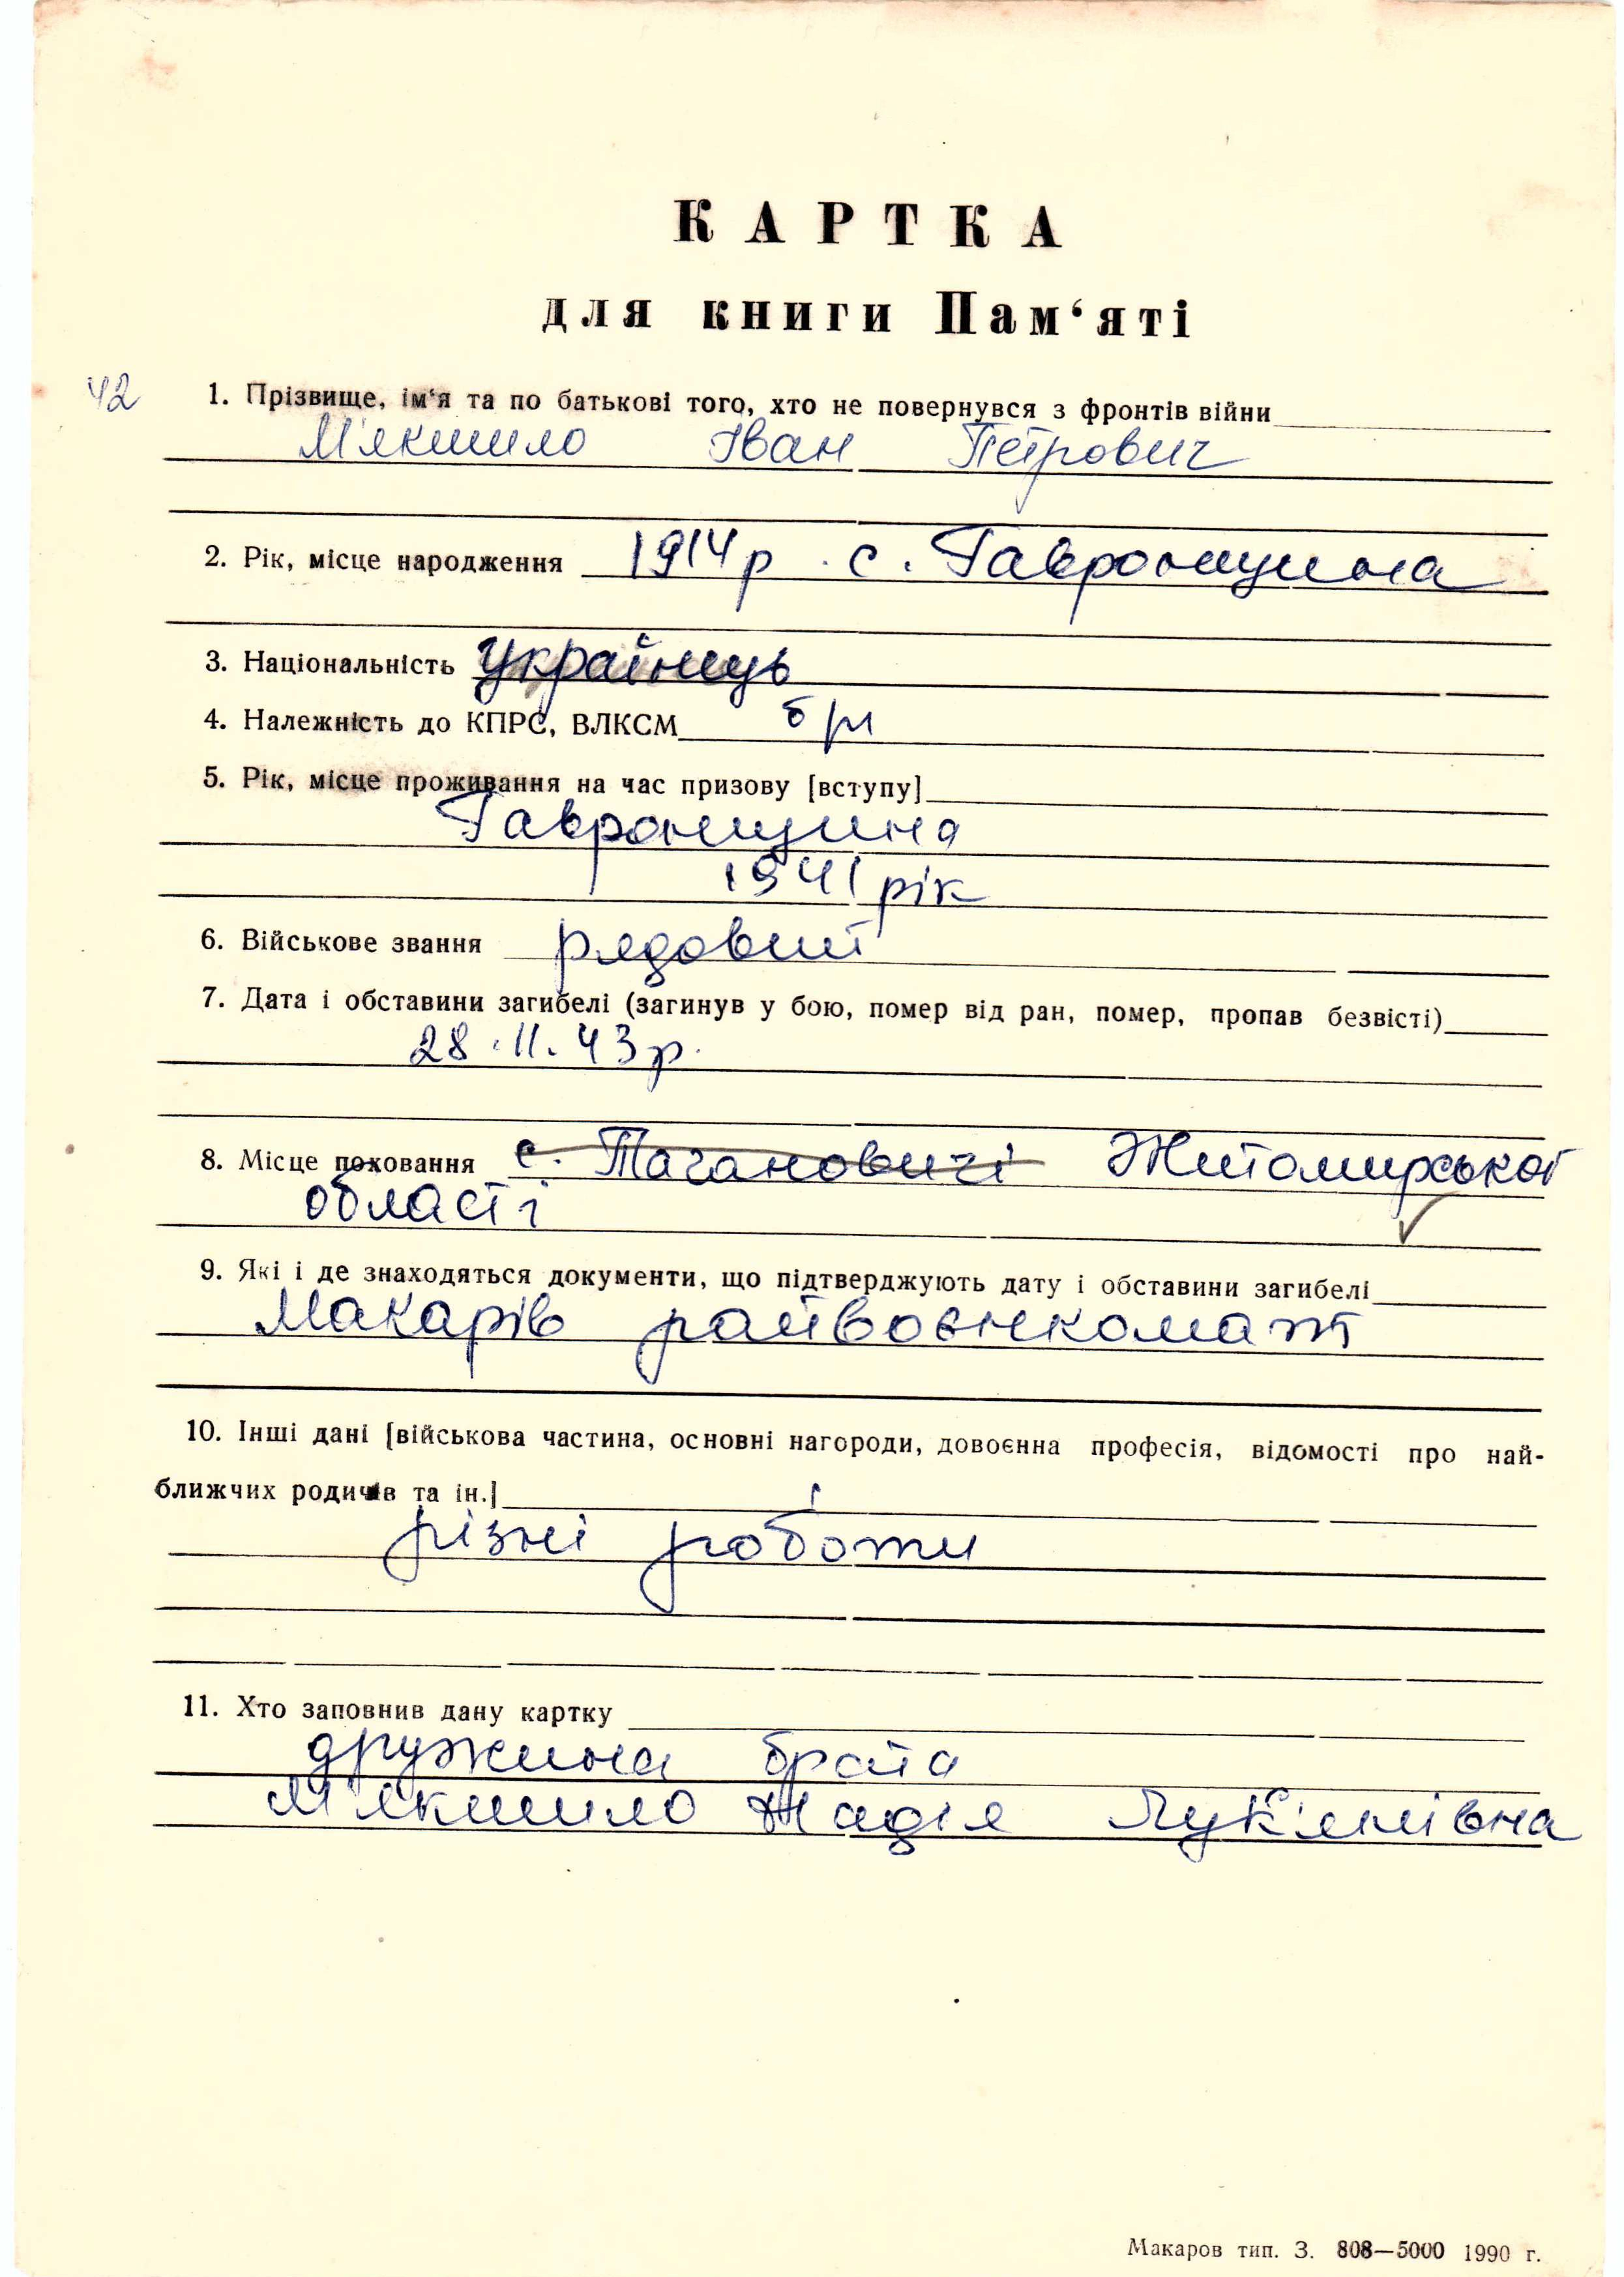 КАРТКА
для книги Пам‘яті
42
1. Прізвище, ім‘я та по батькові того, хто не повернувся з фронтів війни
М'якшило Іван Петрович
2. Рік, місце народження 1914 р. с. Гавронщина
3. Національність українець
4. Належність до КПРС, ВЛКСМ б/п
5. Рік, місце проживання на час призову [вступу]
Гавронщина
1941 рік
6. Військове звання рядовий
7. Дата і обставини загибелі (загинув у бою, помер від ран, помер, пропав безвісті)
28.11.43 р.
8. Місце поховання с. Тагановичі Житомирської
області
9. Які і де знаходяться документи, що підтверджують дату і обставини загибелі
Макарів райвоєнкомат
10. Інші дані [військова частина, основні нагороди, довоєнна професія, відомості про най-
ближчих родичів та ін.]
різні роботи
11. Хто заповнив дану картку
дружина брата
М'якшило Надія Лук'янівна
Макаров тип. З. 808—5000 1990 г.